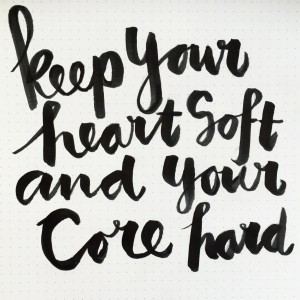 keep your
heart Soft
and your
Core hard